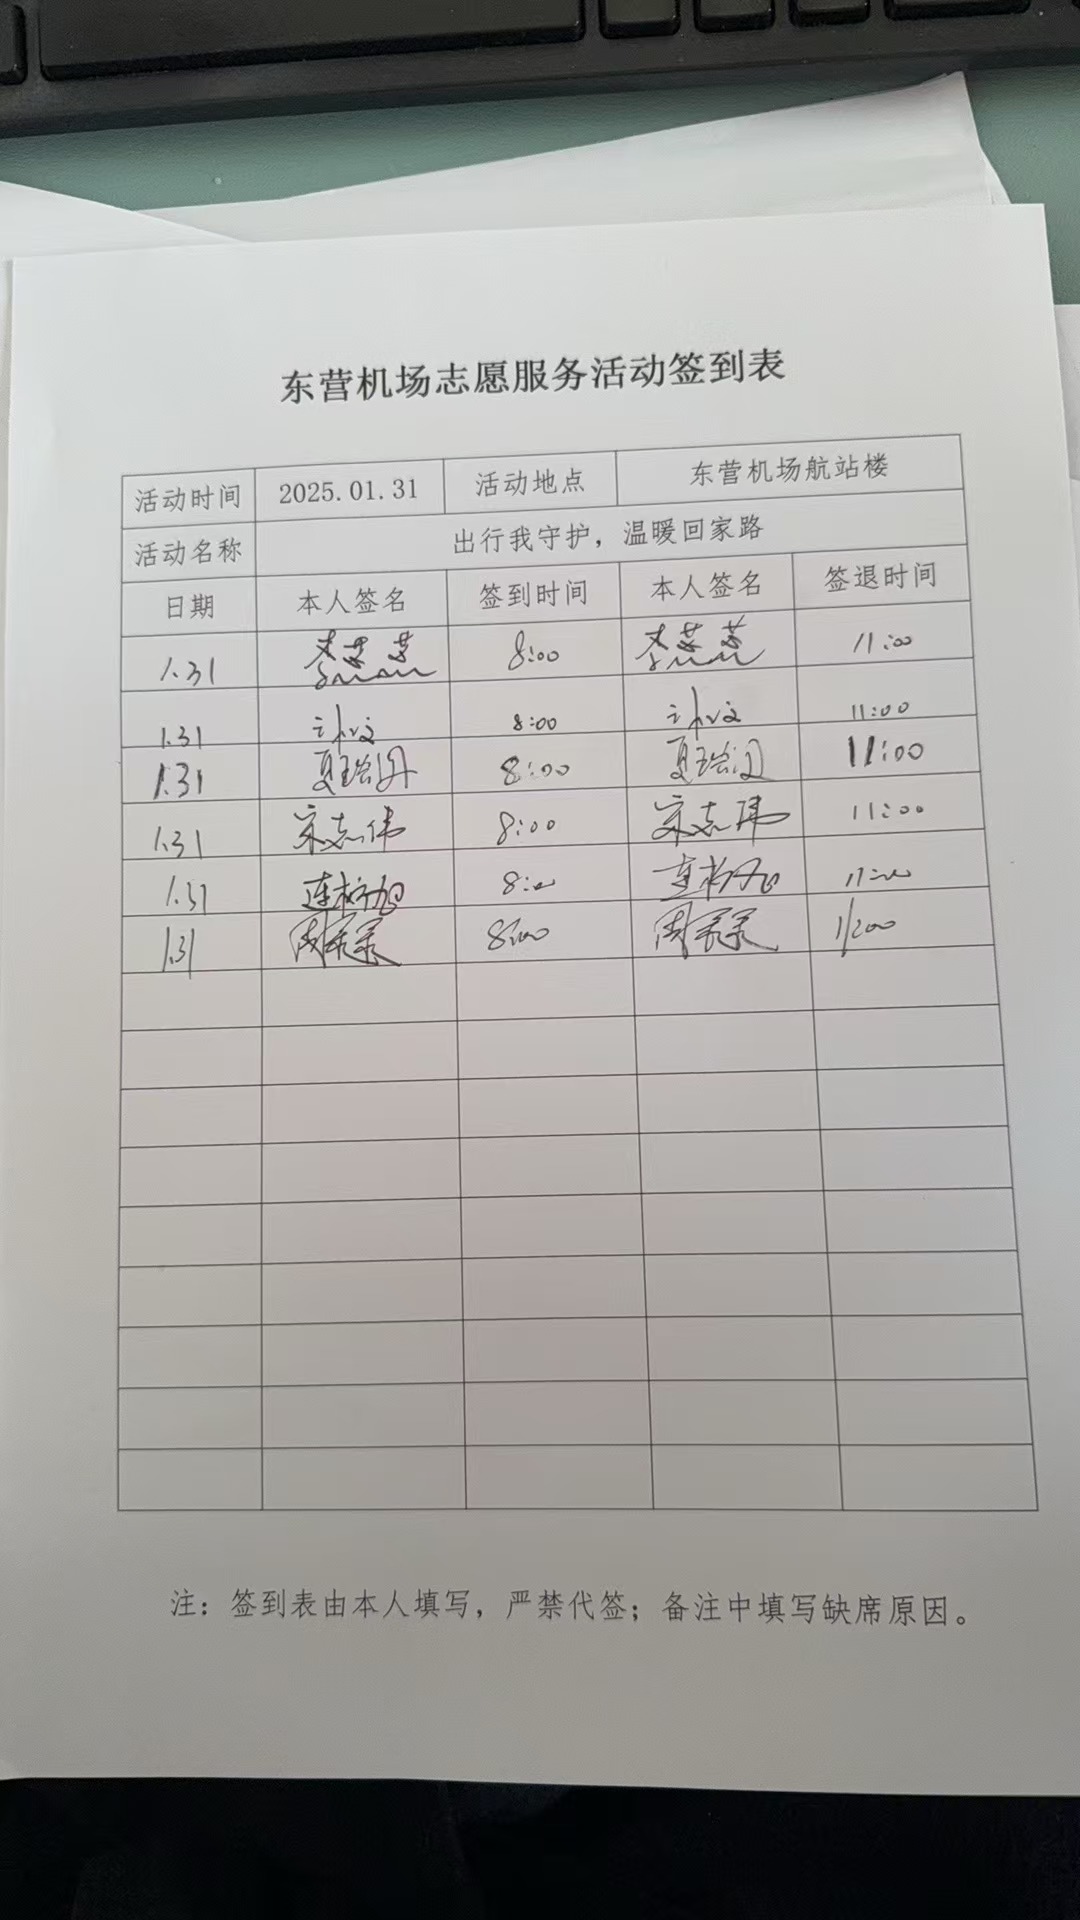 东营机场志愿服务活动签到表
活动时间 2025.01.31 活动地点 东营机场航站楼
活动名称 出行我守护，温暖回家路
日期 本人签名 签到时间 本人签名 签退时间
1.31 8:00 11:00
1.31 8:00 11:00
1.31 8:00 11:00
1.31 宋志伟 8:00 宋志玮 11:00
1.31 8:00 11:00
1.31 8:00 11:00
注：签到表由本人填写，严禁代签；备注中填写缺席原因。